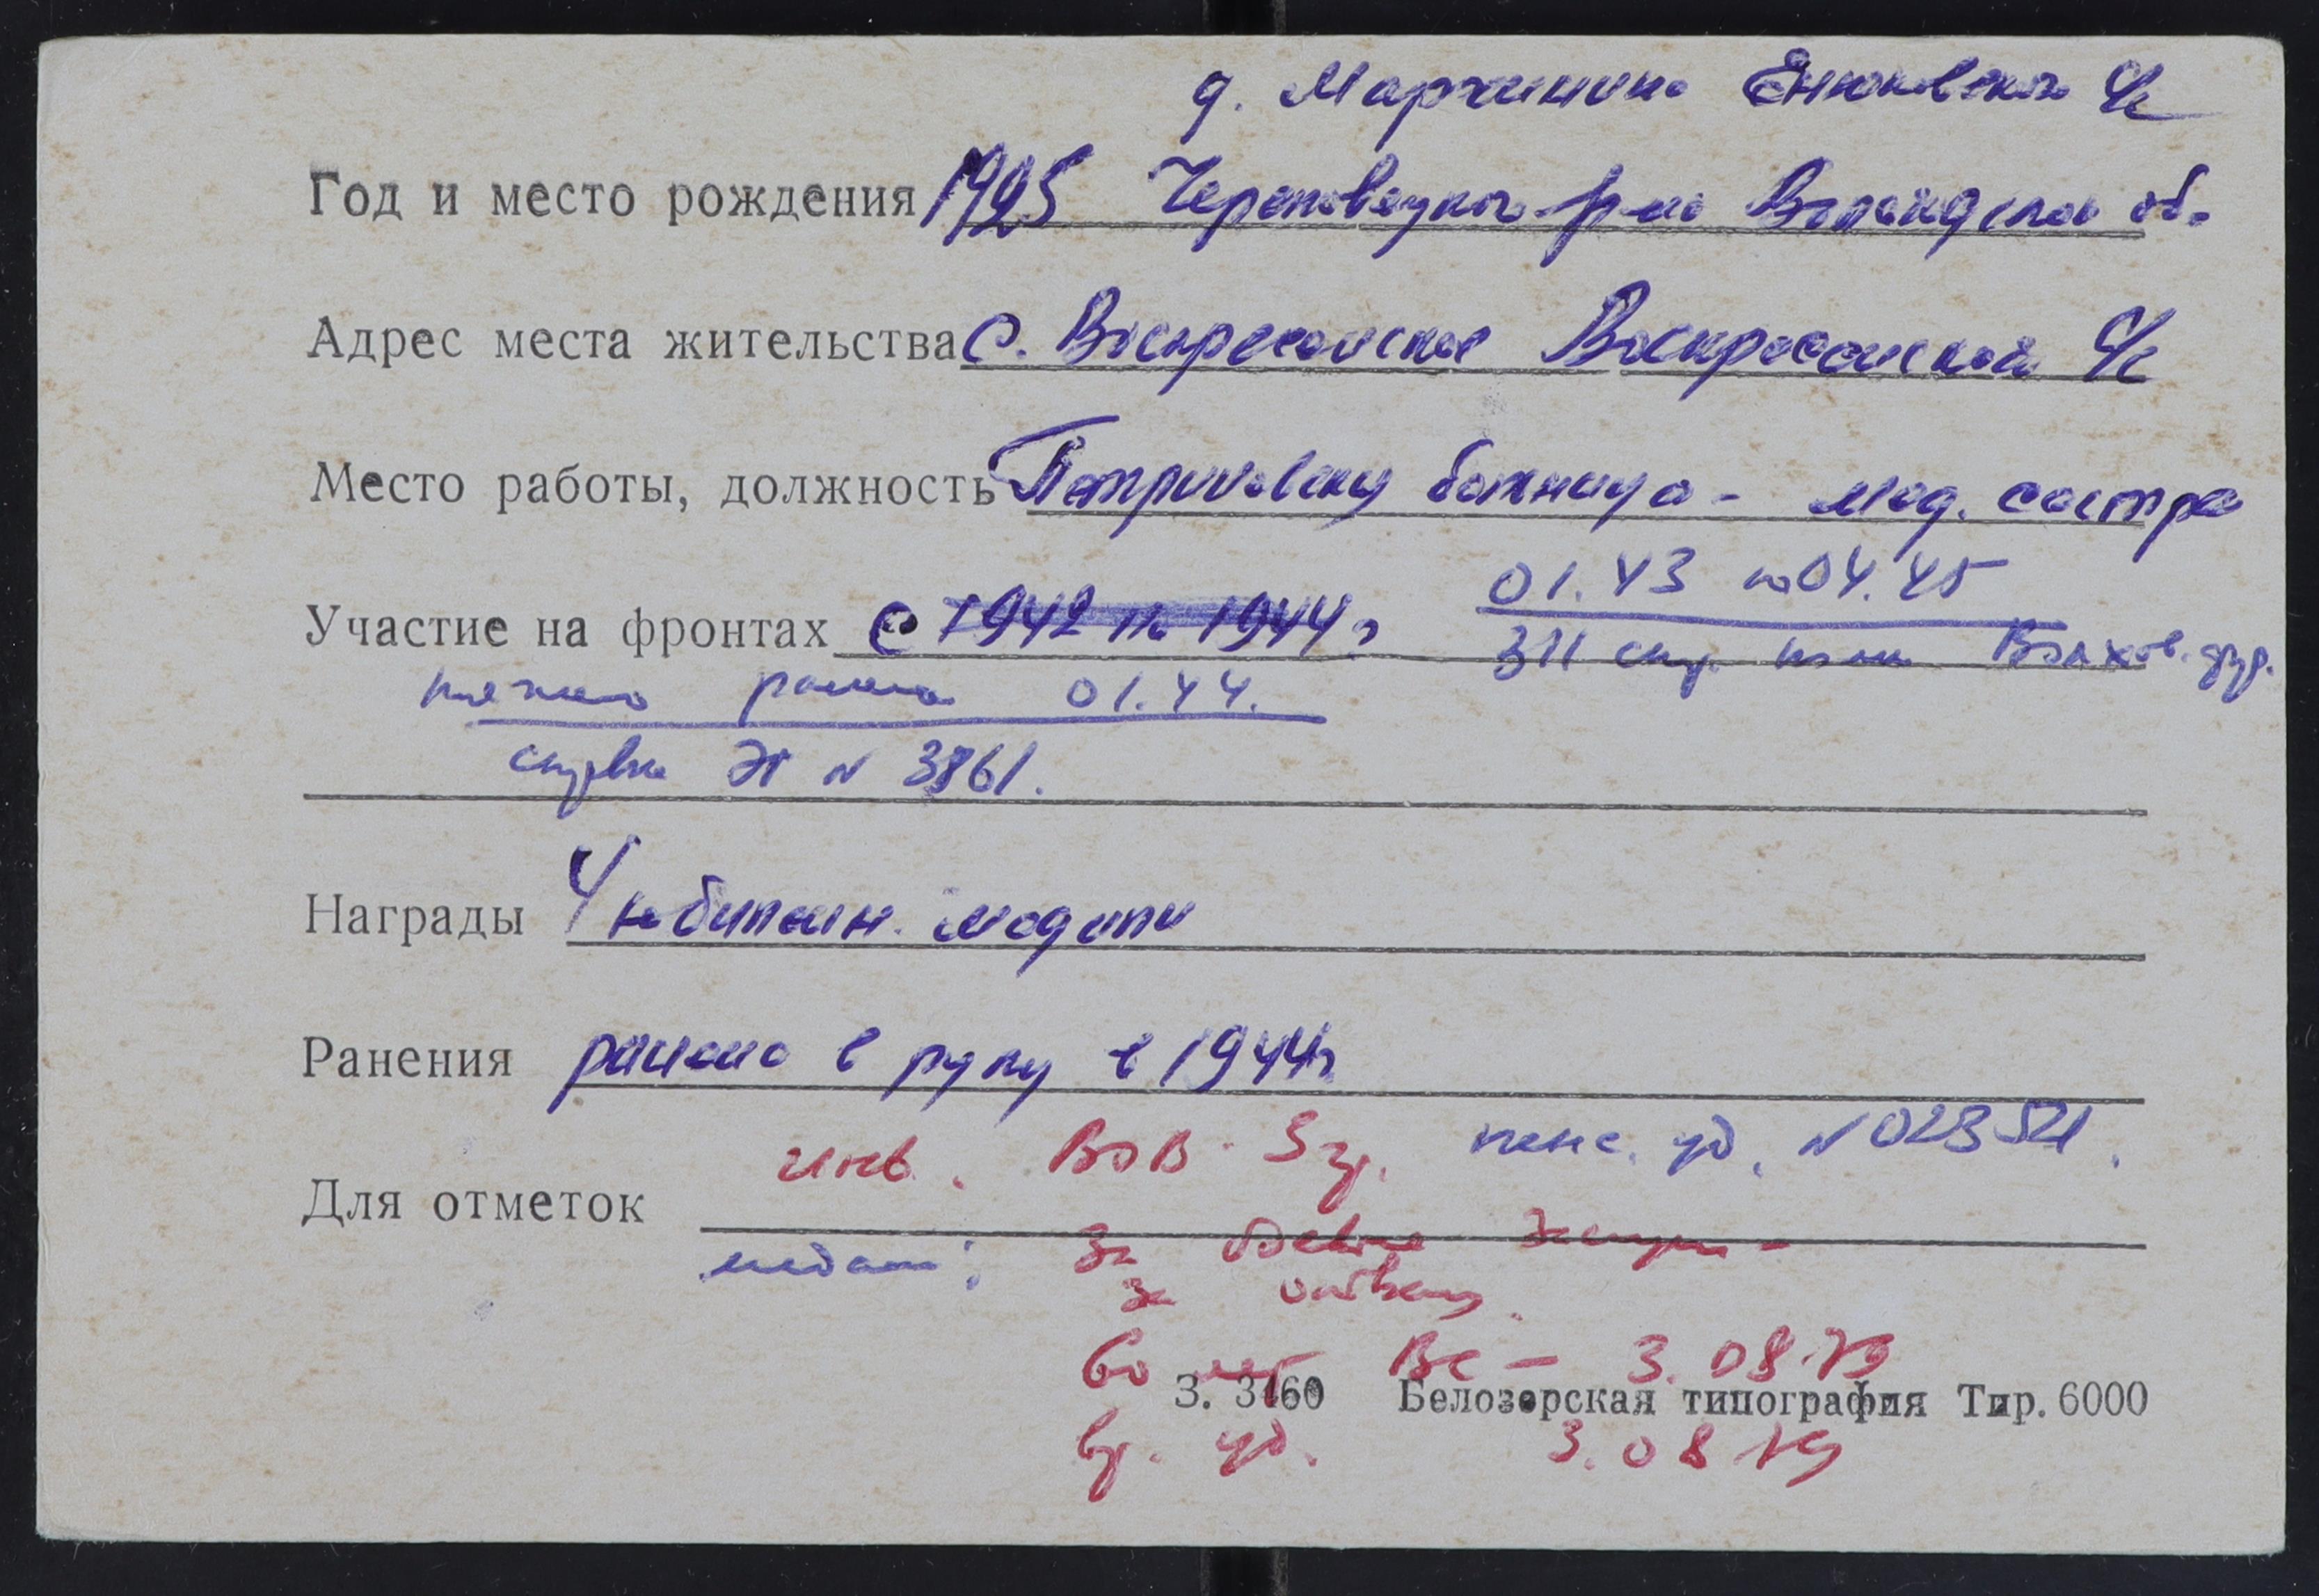 д. Мархинино Енюковского с/с
Год и место рождения 1925 Череповецкого р-на Вологодской об.
Адрес места жительства с. Воскресенское Воскресенский с/с
Место работы, должность больница - мед. сестра
01.43 по 04.45
Участие на фронтах с 1942 по 1944 г
311 стр. полк Волхов. фр.
ранена 01.44.
справка ЭГ № 3861.
Награды 4 юбилейн. медали
Ранения ранена в руку в 1944г
инв. ВОВ 3 гр. пенс. уд. № 023521.
Для отметок
медали: За боевые заслуги -
за отвагу.
60 лет ВС - 3.08.79
вр. уд. 3.08.79
З. 3160 Белозерская типография Тир. 6000